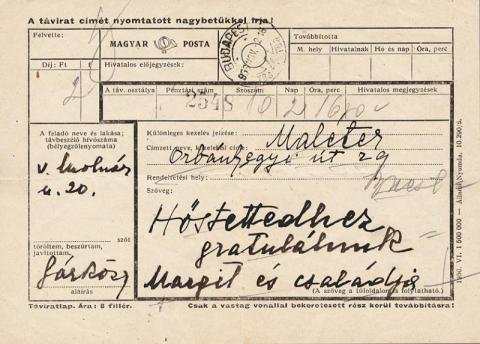 A távirat címét nyomtatott nagybetűkkel írja!
Felvette:
MAGYAR POSTA
Továbbította
M. hely Hivatalnak Hó és nap Óra, perc
Díj: Ft f
Hivatalos előjegyzések:
BUDAPEST
2
A táv. osztálya Pénztári szám Szószám Nap Óra, perc Hivatalos megjegyzések
2548 10 21
A feladó neve és lakása;
távbeszélő hívószáma
(bélyegzőlenyomata)
Különleges kezelés jelzése:
Maleter
Címzett neve, közelebbi címe:
Orbánhegyi út 29
v. Molnár
u. 20.
Rendeltetési hely:
Bpest
Szöveg:
Hőstettedhez
gratulálunk
Margit és családja
szót
töröltem, beszúrtam,
javítottam.
Sárközi
aláírás
(A szöveg a túloldalon is folytatható.)
Távíratlap. Ára: 8 fillér.
Csak a vastag vonallal bekeretezett rész kerül továbbításra!
1956. VI. 1 500 000 — Állami Nyomda, 10.290/2.